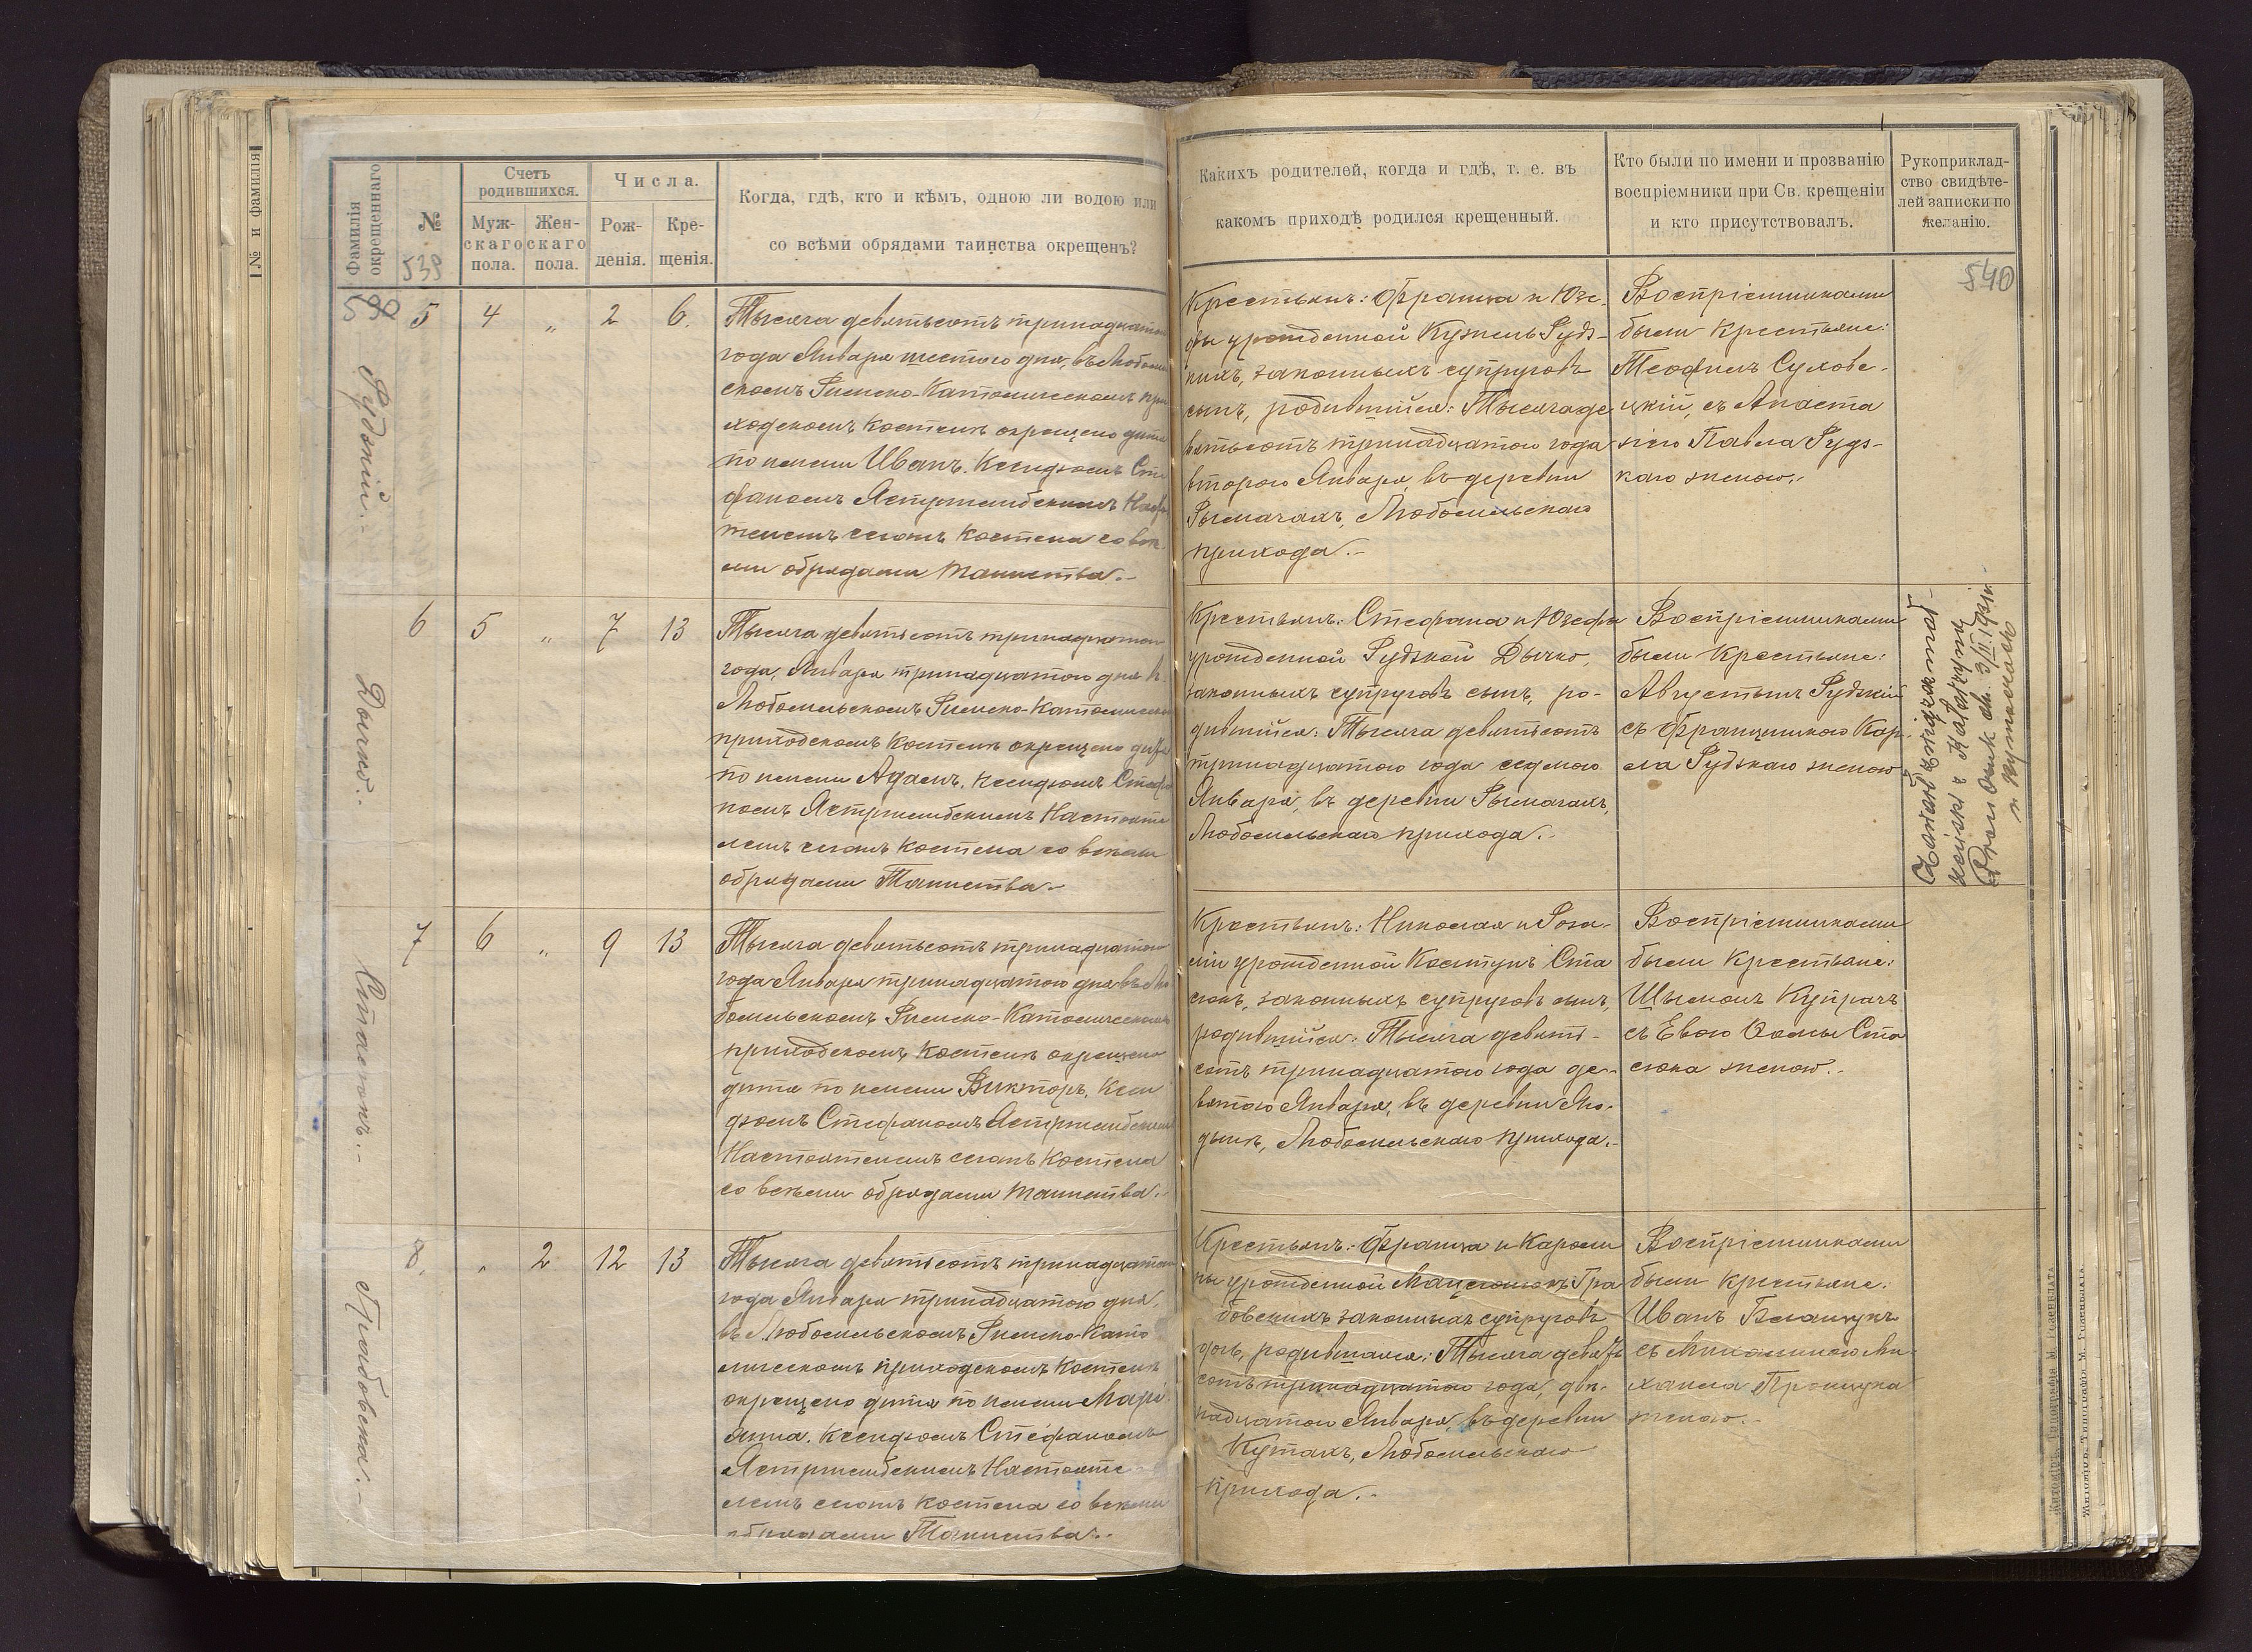 № и фамилія
Фамилія окрещеннаго
№
539
Счетъ родившихся.
Муж-
скаго
пола.
Жен-
скаго
пола.
Числа.
Рож-
денія.
Кре-
щенія.
Когда, гдѣ, кто и кѣмъ, одною ли водою или
со всѣми обрядами таинства окрещенъ?
Какихъ родителей, когда и гдѣ, т. е. въ
какомъ приходѣ родился крещенный.
Кто были по имени и прозванію
воспріемники при Св. крещеніи
и кто присутствовалъ.
Рукоприклад-
ство свидѣте-
лей записки по
желанію.
540
590
Рудзкій.-
5 4 „ 2 6.
Тысяча девятьсотъ тринадцатаго
года Января шестого дня, въ Любомль
скомъ Римско-Католическомъ при
ходскомъ Костелѣ окрещено дитя
по имени Иванъ, Ксендзомъ Сте
фаномъ Ястржембскимъ Насто
телемъ сегожъ Костела со всѣ
ми обрядами таинства.-
Крестьянъ: Франца и Юзе-
фы урожденной Кузмель Рудз-
кихъ, законныхъ супруговъ
сынъ, родившійся: Тысяча де
вятьсотъ тринадцатаго года
второго Января, въ деревни
Рымачахъ, Любомльскаго
прихода.-
Воспріемниками
были Крестьяне:
Теофилъ Сухове-
цкій, съ Анаста
зіею Павла Рудз-
каго женою.-
Дычко.-
6 5 „ 7 13
Тысяча девятьсотъ тринадцатаго
года, Января тринадцатаго дня в.
Любомльскомъ Римско-Католическом
приходскомъ Костелѣ окрещено дитя
по имени Адамъ, Ксендзомъ Стефа
номъ Ястржембскимъ Настояте
лемъ сегожъ Костела со всѣми
обрядами Таинства.-
Крестьянъ: Стефана и Юзефы
урожденной Рудзкой Дычко,
законныхъ супруговъ сынъ, ро-
дившійся: Тысяча девятьсотъ
тринадцатаго года седмого
Января, въ деревни Рымачахъ,
Любомльскаго прихода.-
Воспріемниками
были Крестьяне:
Августынъ Рудзкій
съ Францишкою Кар-
ла Рудзкаго женою
Zawarł związek mał-
żeński z Katarzyną
3/II.193
w Rymaczach
Стасюкъ.-
7 6 „ 9 13
Тысяча девятьсотъ тринадцатаго
года Января тринадцатаго дня въ Лю
бомльскомъ Римско-Католическомъ
приходскомъ Костелѣ окрещено
дитя по имени Викторъ, Ксен
дзомъ Стефаномъ Ястржембскимъ
Настоятелемъ сегожъ Костела
со всѣми обрядами таинства.-
Крестьянъ: Николая и Роза-
ліи урожденной Костукъ Ста
сюкъ, законныхъ супруговъ сынъ,
родившійся: Тысяча девять-
сотъ тринадцатаго года де-
вятого Января, въ деревни
Любомльскаго прихода.-
Воспріемниками
были Крестьяне:
Шымонъ Купрачъ
съ Евою Ѳомы Ста
сюка женою.-
Грабовска.-
8. „ 2 12 13
Тысяча девятьсотъ тринадцатаго
года Января тринадцатаго дня,
въ Любомльскомъ Римско-Като
лическомъ приходскомъ Костелѣ
окрещено дитя по имени Марі-
анна, Ксендзомъ Стефаномъ
Ястржембскимъ Настояте
лемъ сегожъ Костела со всѣми
обрядами Таинства.-
Крестьянъ: Франца и Кароли
ны урожденной Мацегонюкъ Гра
бовскихъ законныхъ супруговъ
дочь, родившаяся: Тысяча девять
сотъ тринадцатаго года, две-
надцатаго Января, въ деревни
Кутахъ, Любомльскаго
прихода.-
Воспріемниками
были Крестьяне:
Иванъ
съ Михалиною Ми-
хаила Процука
женою.-